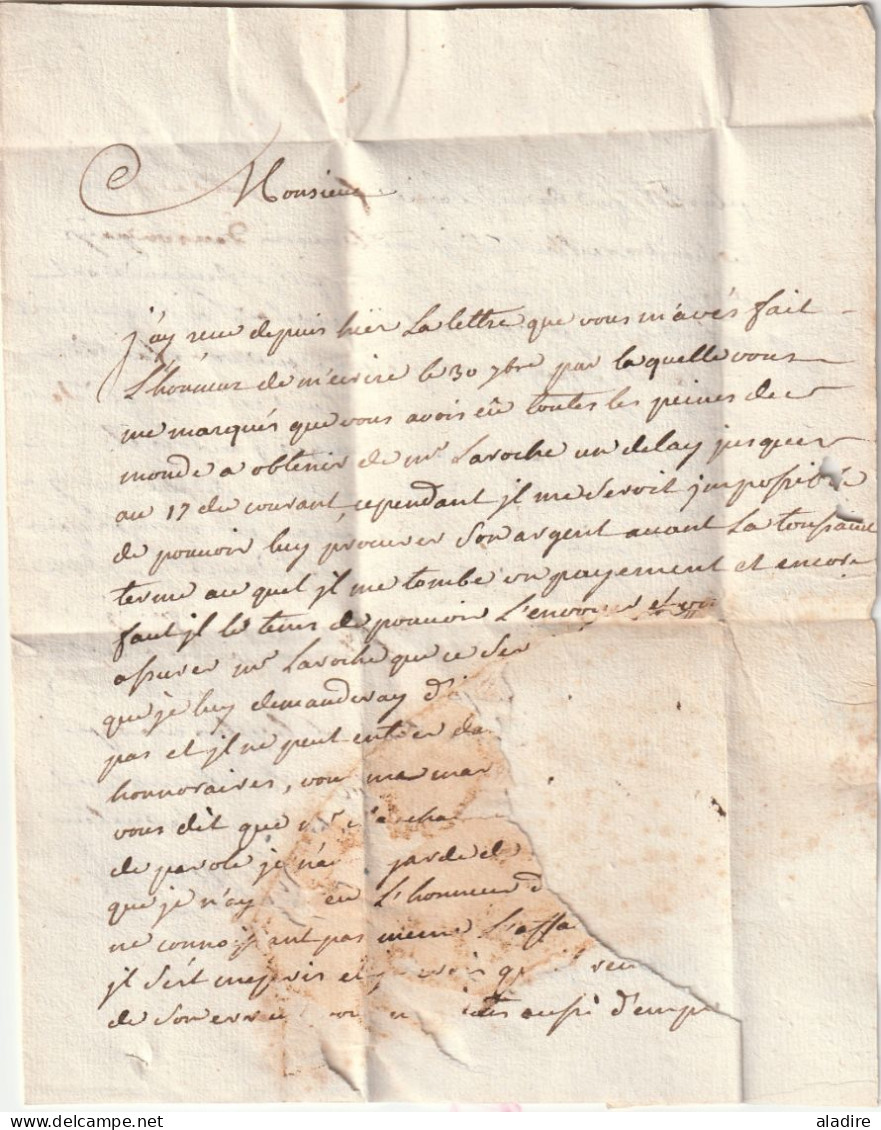 Monsieur
j'ay reçue depuis hier La lettre que vous m'avés fait
L'honneur de m'ecrire le 30 7bre par laquelle vous
me marqués que vous avois eû toutes les peines de
monde a obtenir de mr Laroche un delay jusques
au 17 du courant, cependant jl me seroit jmpossible
de pouvoir luy procurer son argent avant La toussaint
terme au quel jl me tombe un payement et encore
faut jl le tems de pouvoir L'envoyer et
assurer mr Laroche que ce ser
que je luy demanderay d'
pas et jl ne peut entrer da
honnoraires, vou me mar
vous dit que mr
de parole je n'a garde d
que je n'ay eu L'honneur d
ne connoissant pas meme L'affa
jl s'est mepris et
de son erre aussi d'emp
aladire